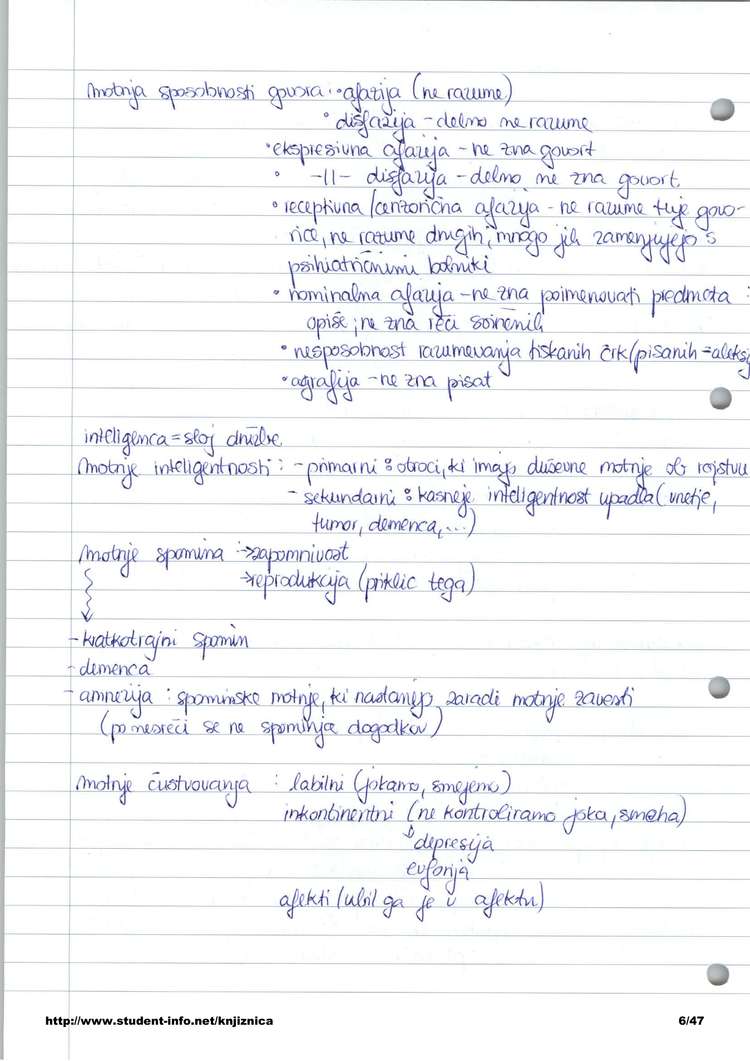 motnja sposobnosti govora: • afazija (ne razume)
• disfazija - delno ne razume
• ekspresivna afazija - ne zna govort
• -||- disfazija - delno ne zna govort
• receptivna /cenzorična afazija - ne razume tuje govo-
rice, ne razume drugih, mnogo jih zamenjujejo s
psihiatričnimi bolniki
• nominalna afazija - ne zna poimenovati predmeta :
opiše, ne zna reči
• nesposobnost razumevanja tiskanih črk (pisanih = aleksij
• agrafija - ne zna pisat
inteligenca = sloj družbe
motnje inteligentnosti : - primarni : otroci, ki imajo duševne motnje ob rojstvu
- sekundarni : kasneje inteligentnost upadla (vnetje,
tumor, demenca, ...)
motnje spomina :→ zapomnivost
→ reprodukcija (priklic tega)
- kratkotrajni spomin
- demenca
- amnezija : spominske motnje, ki nastanejo zaradi motnje zavesti
(po nesreči se ne spominja dogodkov)
motnje čustvovanja : labilni (jokamo, smejemo)
inkontinentni (ne kontroliramo joka, smeha)
↳ depresija
evforija
afekti (ubil ga je v afektu)
http://www.student-info.net/knjiznica 6/47